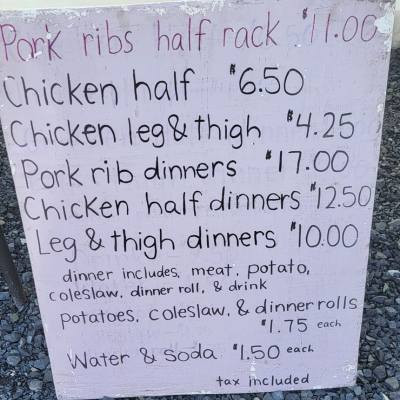 Pork ribs half rack $11.00
Chicken half $6.50
Chicken leg & thigh $4.25
Pork rib dinners $17.00
Chicken half dinners $12.50
Leg & thigh dinners $10.00
dinner includes, meat, potato,
coleslaw, dinner roll, & drink
potatoes, coleslaw, & dinner rolls
$1.75 each
Water & Soda $1.50 each
tax included